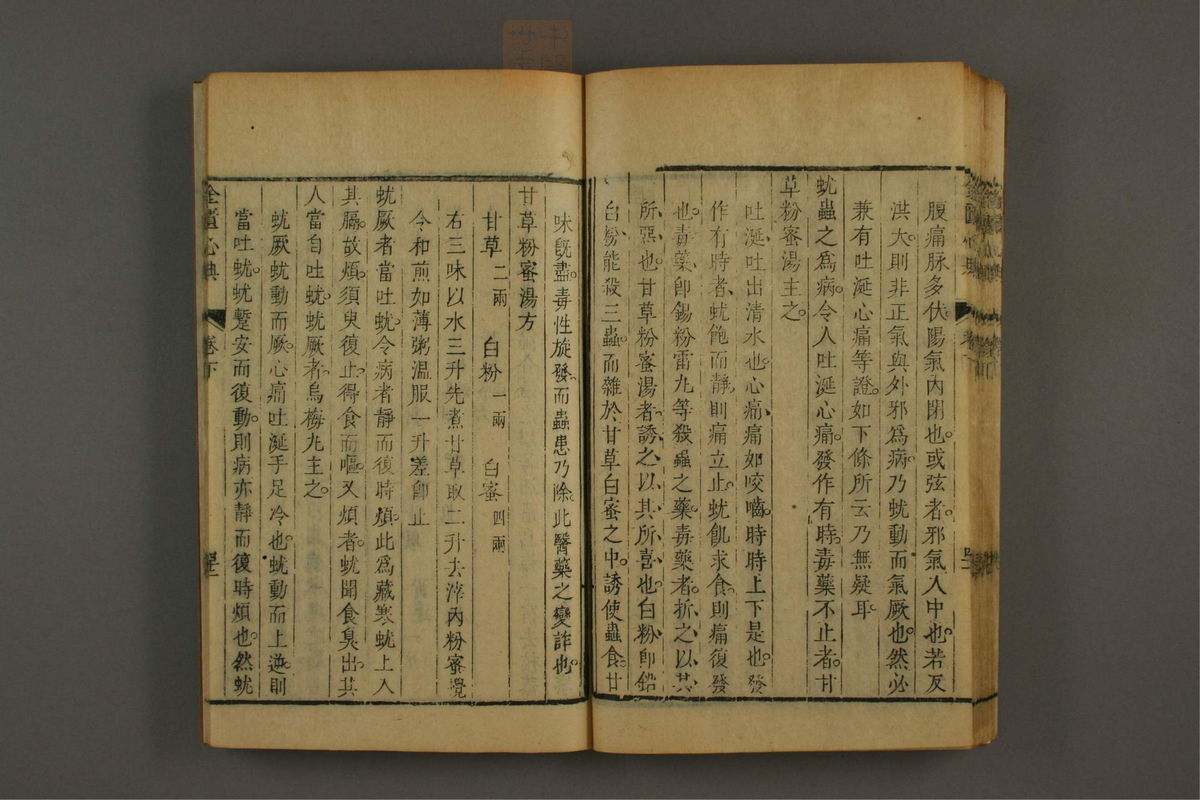 腹痛脉多伏陽氣內閉也或弦者邪氣入中也若反
洪大則非正氣與外邪爲病乃蚘動而氣厥也然必
兼有吐涎心痛等證如下條所云乃無疑耳
蚘蟲之爲病令人吐涎心痛發作有時毒藥不止者甘
草粉蜜湯主之
吐涎吐出清水也心痛痛如咬嚙時時上下是也發
作有時者蚘飽而靜則痛立止蚘飢求食則痛復發
也毒藥卽錫粉雷丸等殺蟲之藥毒藥者折之以其
所惡也甘草粉蜜湯者誘之以其所喜也白粉卽鉛
白粉能殺三蟲而雜於甘草白蜜之中誘使蟲食甘
味旣盡毒性旋發而蟲患乃除此醫藥之變詐也
甘草粉蜜湯方
甘草 二兩 白粉 一兩 白蜜 四兩
右三味以水三升先煮甘草取二升去滓內粉蜜攪
令和煎如薄粥溫服一升差卽止
蚘厥者當吐蚘令病者靜而復時煩此爲藏寒蚘上入
其膈故煩須臾復止得食而嘔又煩者蚘聞食臭出其
人當自吐蚘蚘厥者烏梅丸主之
蚘厥蚘動而厥心痛吐涎手足冷也蚘動而上逆則
當吐蚘蚘蹔安而復動則病亦靜而復時煩也然蚘
金匱心典 卷下